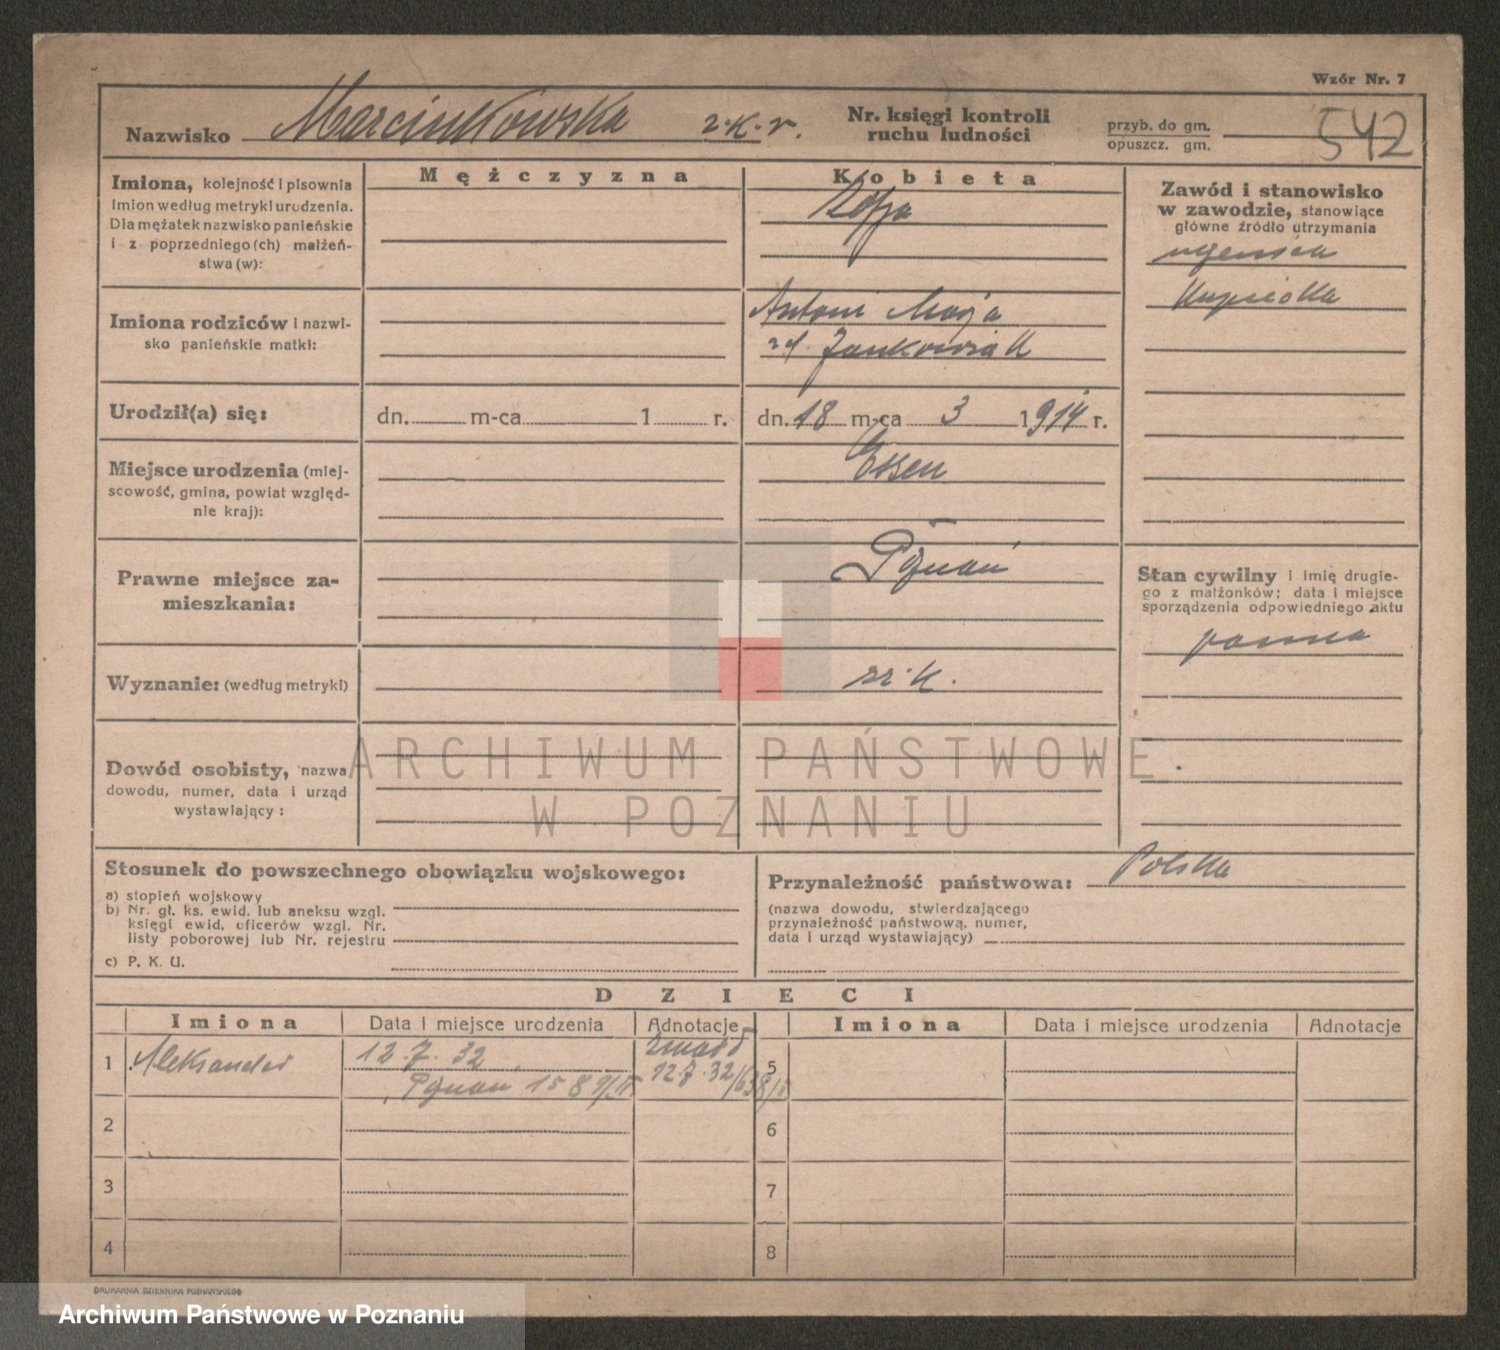 Wzór Nr. 7
Nazwisko Marcinkowska z. k. r.
Nr. księgi kontroli
ruchu ludności
przyb. do gm.
opuszcz. gm.
542
Imiona, kolejność i pisownia
Imion według metryki urodzenia.
Dla mężatek nazwisko panieńskie
i z poprzedniego (ch) małżeń-
stwa (w):
Mężczyzna
Kobieta
Zofja
Zawód i stanowisko
w zawodzie, stanowiące
główne źródło utrzymania
uczenica
kupiecka
Imiona rodziców i nazwi-
sko panieńskie matki:
Antoni Marja
Jankowiak
Urodził(a) się:
dn. m-ca 1 r.
dn. 18 m-ca 3 1914 r.
Miejsce urodzenia (miej-
scowość, gmina, powiat względ-
nie kraj):
Essen
Prawne miejsce za-
mieszkania:
Poznań
Stan cywilny i imię drugie-
go z małżonków; data i miejsce
sporządzenia odpowiedniego aktu
panna
Wyznanie: (według metryki)
rz. k.
Dowód osobisty, nazwa
dowodu, numer, data i urząd
wystawiający:
ARCHIWUM PAŃSTWOWE
W POZNANIU
Stosunek do powszechnego obowiązku wojskowego:
a) stopień wojskowy
b) Nr. gł. ks. ewid. lub aneksu wzgl.
księgi ewid. oficerów wzgl. Nr.
listy poborowej lub Nr. rejestru
c) P. K. U.
Przynależność państwowa: Polska
(nazwa dowodu, stwierdzającego
przynależność państwową, numer,
data i urząd wystawiający)
DZIECI
Imiona Data i miejsce urodzenia Adnotacje Imiona Data i miejsce urodzenia Adnotacje
1 Aleksander 12.7.32 zmarł 5
Poznań 1589/II 12.7.32
2 6
3 7
4 8
DRUKARNIA DZIENNIKA POZNAŃSKIEGO
Archiwum Państwowe w Poznaniu